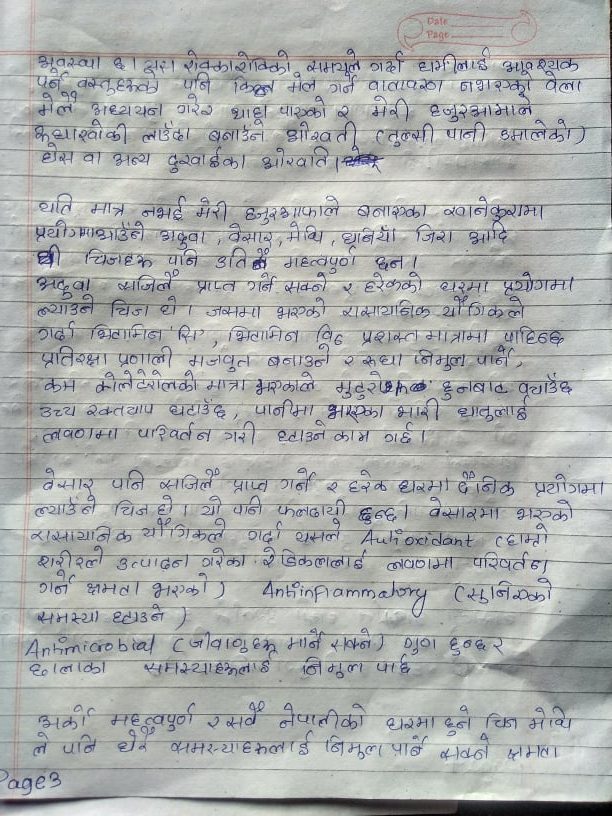 Date
Page
अवस्था छ। यस्तो शोक्काशोक्को समयले गर्दा धामीलाई आवश्यक
पर्ने वस्तुहरूको पनि किन मेल गर्न वातावरण नभएको वेला
मैले अध्ययन गरेर थाहा पाएको र मेरी हजुरआमाले
रुघाखोकी लाउँदा बनाउने ओखती (तुल्सी पानी उमालेको)
होस वा अन्य दुखाईका ओखति।
यति मात्र नभई मेरी हजुरआफाले बनाएका खानेकुरामा
प्रयोगमाआउने अदुवा, वेसार, मेथि, धनियाँ जिरा आदि
चिजहरू पनि उतिकै महत्वपुर्ण छन।
अदुवा सजिलै प्राप्त गर्न सक्ने र हरेकको घरमा प्रयोगमा
ल्याउने चिज हो। जसमा भएको रासायनिक यौगिकले
गर्दा भितामिन 'सि', भितामिन वि६ प्रशस्त मात्रामा पाईन्छ
प्रतिरक्षा प्रणाली मजवुत बनाउने र रुघा निमुल पार्ने,
कम कोलेटेरोलको मात्रा भएकाले मुटुरोग हुनबाट बचाउँछ
उच्च रक्तचाप घटाउँछ, पानीमा भएका भारी धातुलाई
लवणमा परिवर्तन गरी हटाउने काम गर्छ।
वेसार पनि सजिलै प्राप्त गर्ने र हरेक घरमा दैनिक प्रयोगमा
ल्याउने चिज हो। यो पनि फलदायी हुन्छ। वेसारमा भएको
रासायनिक यौगिकले गर्दा यसले Antioxidant (हाम्रो
शरीरले उत्पादन गरेका रेडिकललाई लवणमा परिवर्तन
गर्ने क्षमता भएको) Antiinflammatory (सुन्निएको
समस्या हटाउने)
Antimicrobial (जीवाणुहरू मार्न सक्ने) गुण हुन्छ र
छालाका समस्याहरूलाई निमुल पार्छ
अर्को महत्वपुर्ण र सवै नेपालीको घरमा हुने चिज मेथि
ले पनि धेरै समस्याहरूलाई निमुल पार्न सक्ने क्षमता
Page3